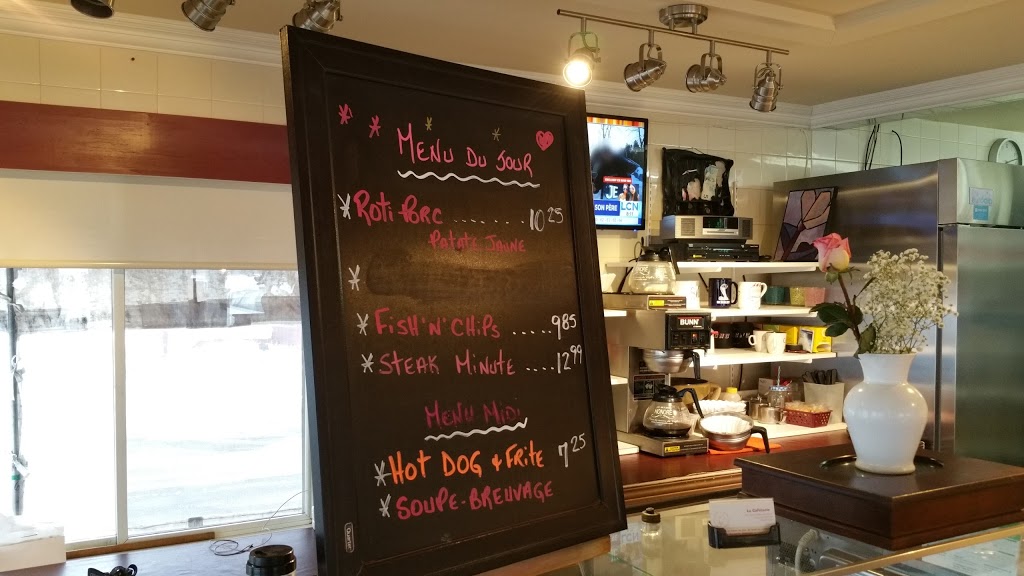 MENU DU JOUR
ROTI PORC ....... 10 25
PATATE JAUNE
FISH 'N' CHIPS ..... 9 85
STEAK MINUTE .... 12 99
MENU MIDI
HOT DOG + FRITE 7 25
SOUPE - BREUVAGE
JE
SON PÈRE
LCN
BUNN